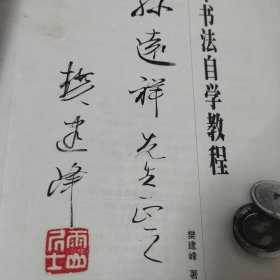 书法自学教程
樊建峰 著
孙远祥先生正之
樊建峰